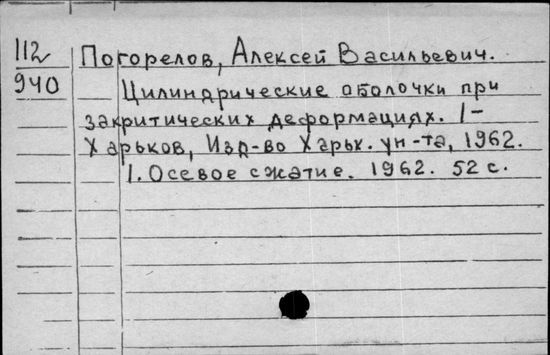 112 Погорелов, Алексей Васильевич.
940 Цилиндрические оболочки при
закритических деформациях. I-
Харьков, Изд-во Харьк. ун-та, 1962.
I. Осевое сжатие. 1962. 52 с.